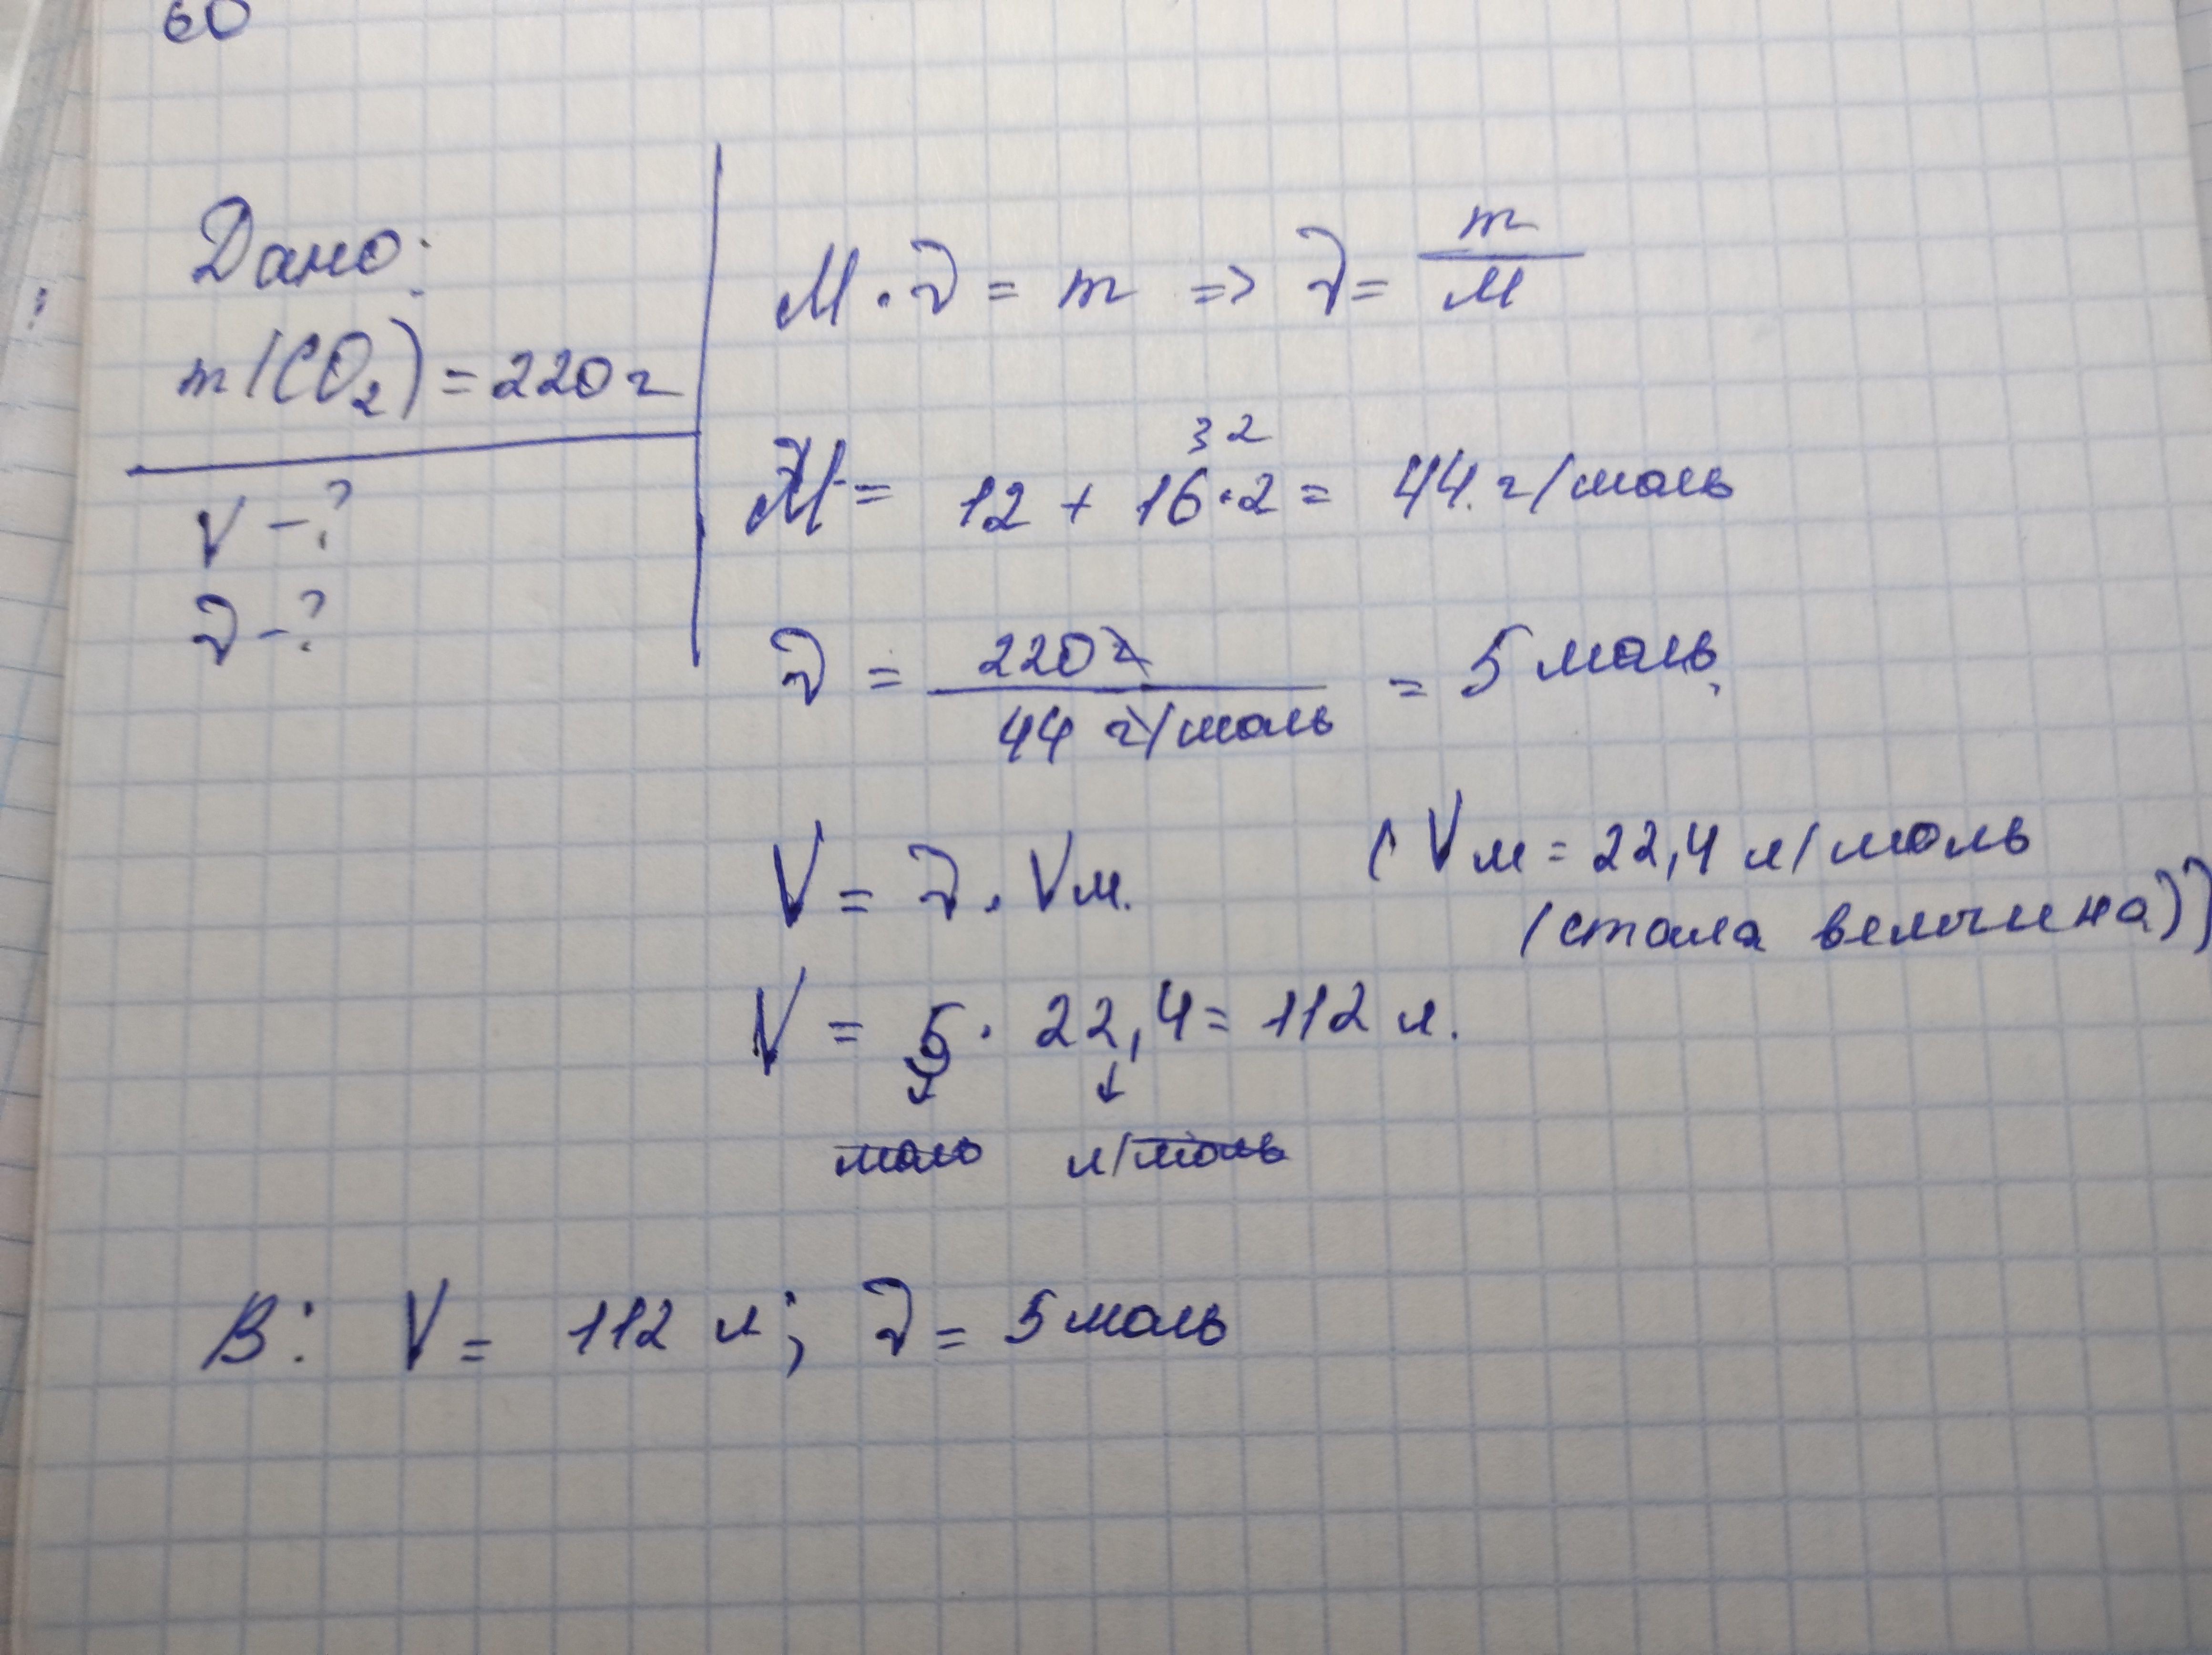 60
Дано:
m(CO₂) = 220 г
V - ?
ν - ?
M · ν = m => ν = m/M
32
M = 12 + 16·2 = 44 г/моль
ν = 220 г / 44 г/моль = 5 моль
V = ν · Vм. (Vм = 22,4 л/моль
(стала величина))
V = 5 · 22,4 = 112 л.
↓ ↓
моль л/моль
В: V = 112 л; ν = 5 моль